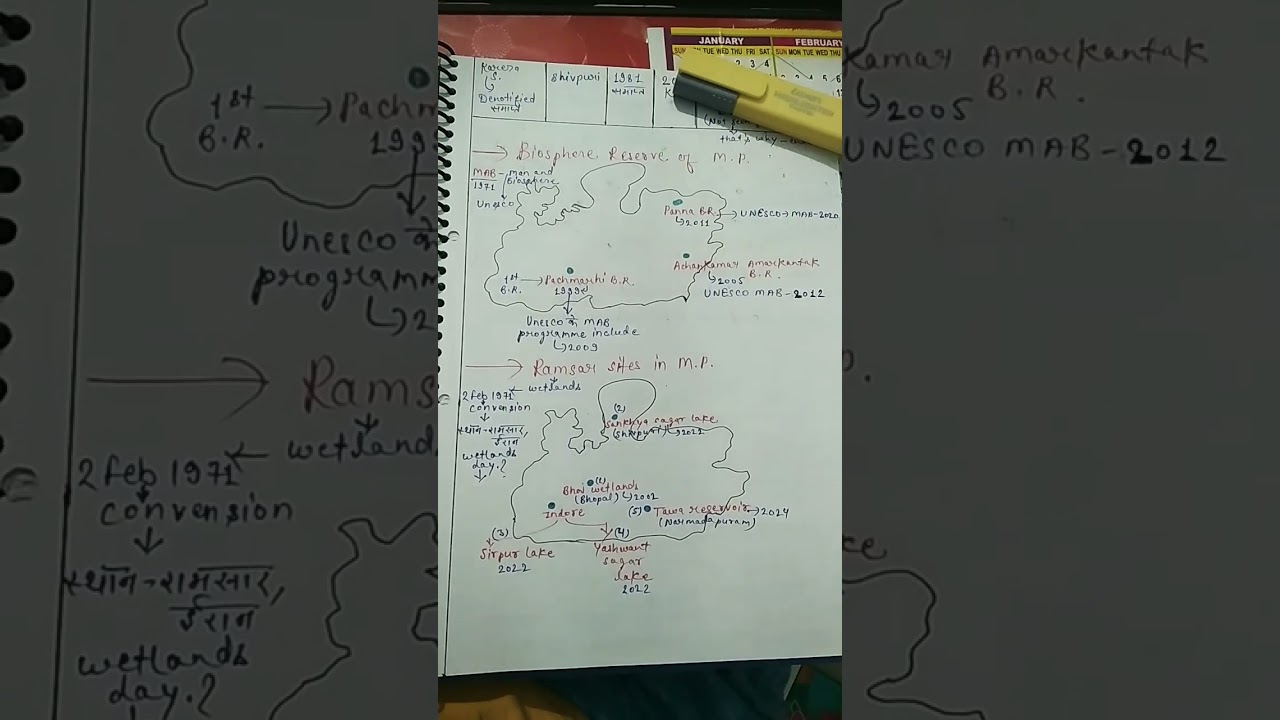 JANUARY
FEBRUARY
SUN TUE WED THU FRI SAT
SUN MON TUE WED THU
Karera
S.
Denotified
समाप्त
Shivpuri
1981
समाप्त
that's why
→ Biosphere Reserve of M.P.
MAB - man and
1971 Biosphere
Unesco
Panna B.R. → UNESCO → MAB-2020
↳ 2011
Achankamar Amarkantak
B.R.
↳ 2005
UNESCO MAB - 2012
1st → Pachmarhi B.R.
B.R.
1999
Unesco के MAB
programme include
↳ 2009
→ Ramsar sites in M.P.
wetlands
2 Feb 1971
convension
स्थान - रामसार,
ईरान
wetlands
day.?
(2)
Sankhya sagar lake
(Shivpuri) ↳ 2022
(1)
Bhoj wetlands
(Bhopal) ↳ 2002
Indore
(5) Tawa reservoir → 2024
(Narmadapuram)
(3)
Sirpur lake
2022
(4)
Yashwant
sagar
lake
2022
1st → Pachm
B.R.
199
Unesco के
programm
↳ 2
→ Rams
wetland
2 Feb 1971
convension
स्थान - रामसार,
ईरान
wetlands
day.?
kamar Amarkantak
B.R.
↳ 2005
UNESCO MAB - 2012